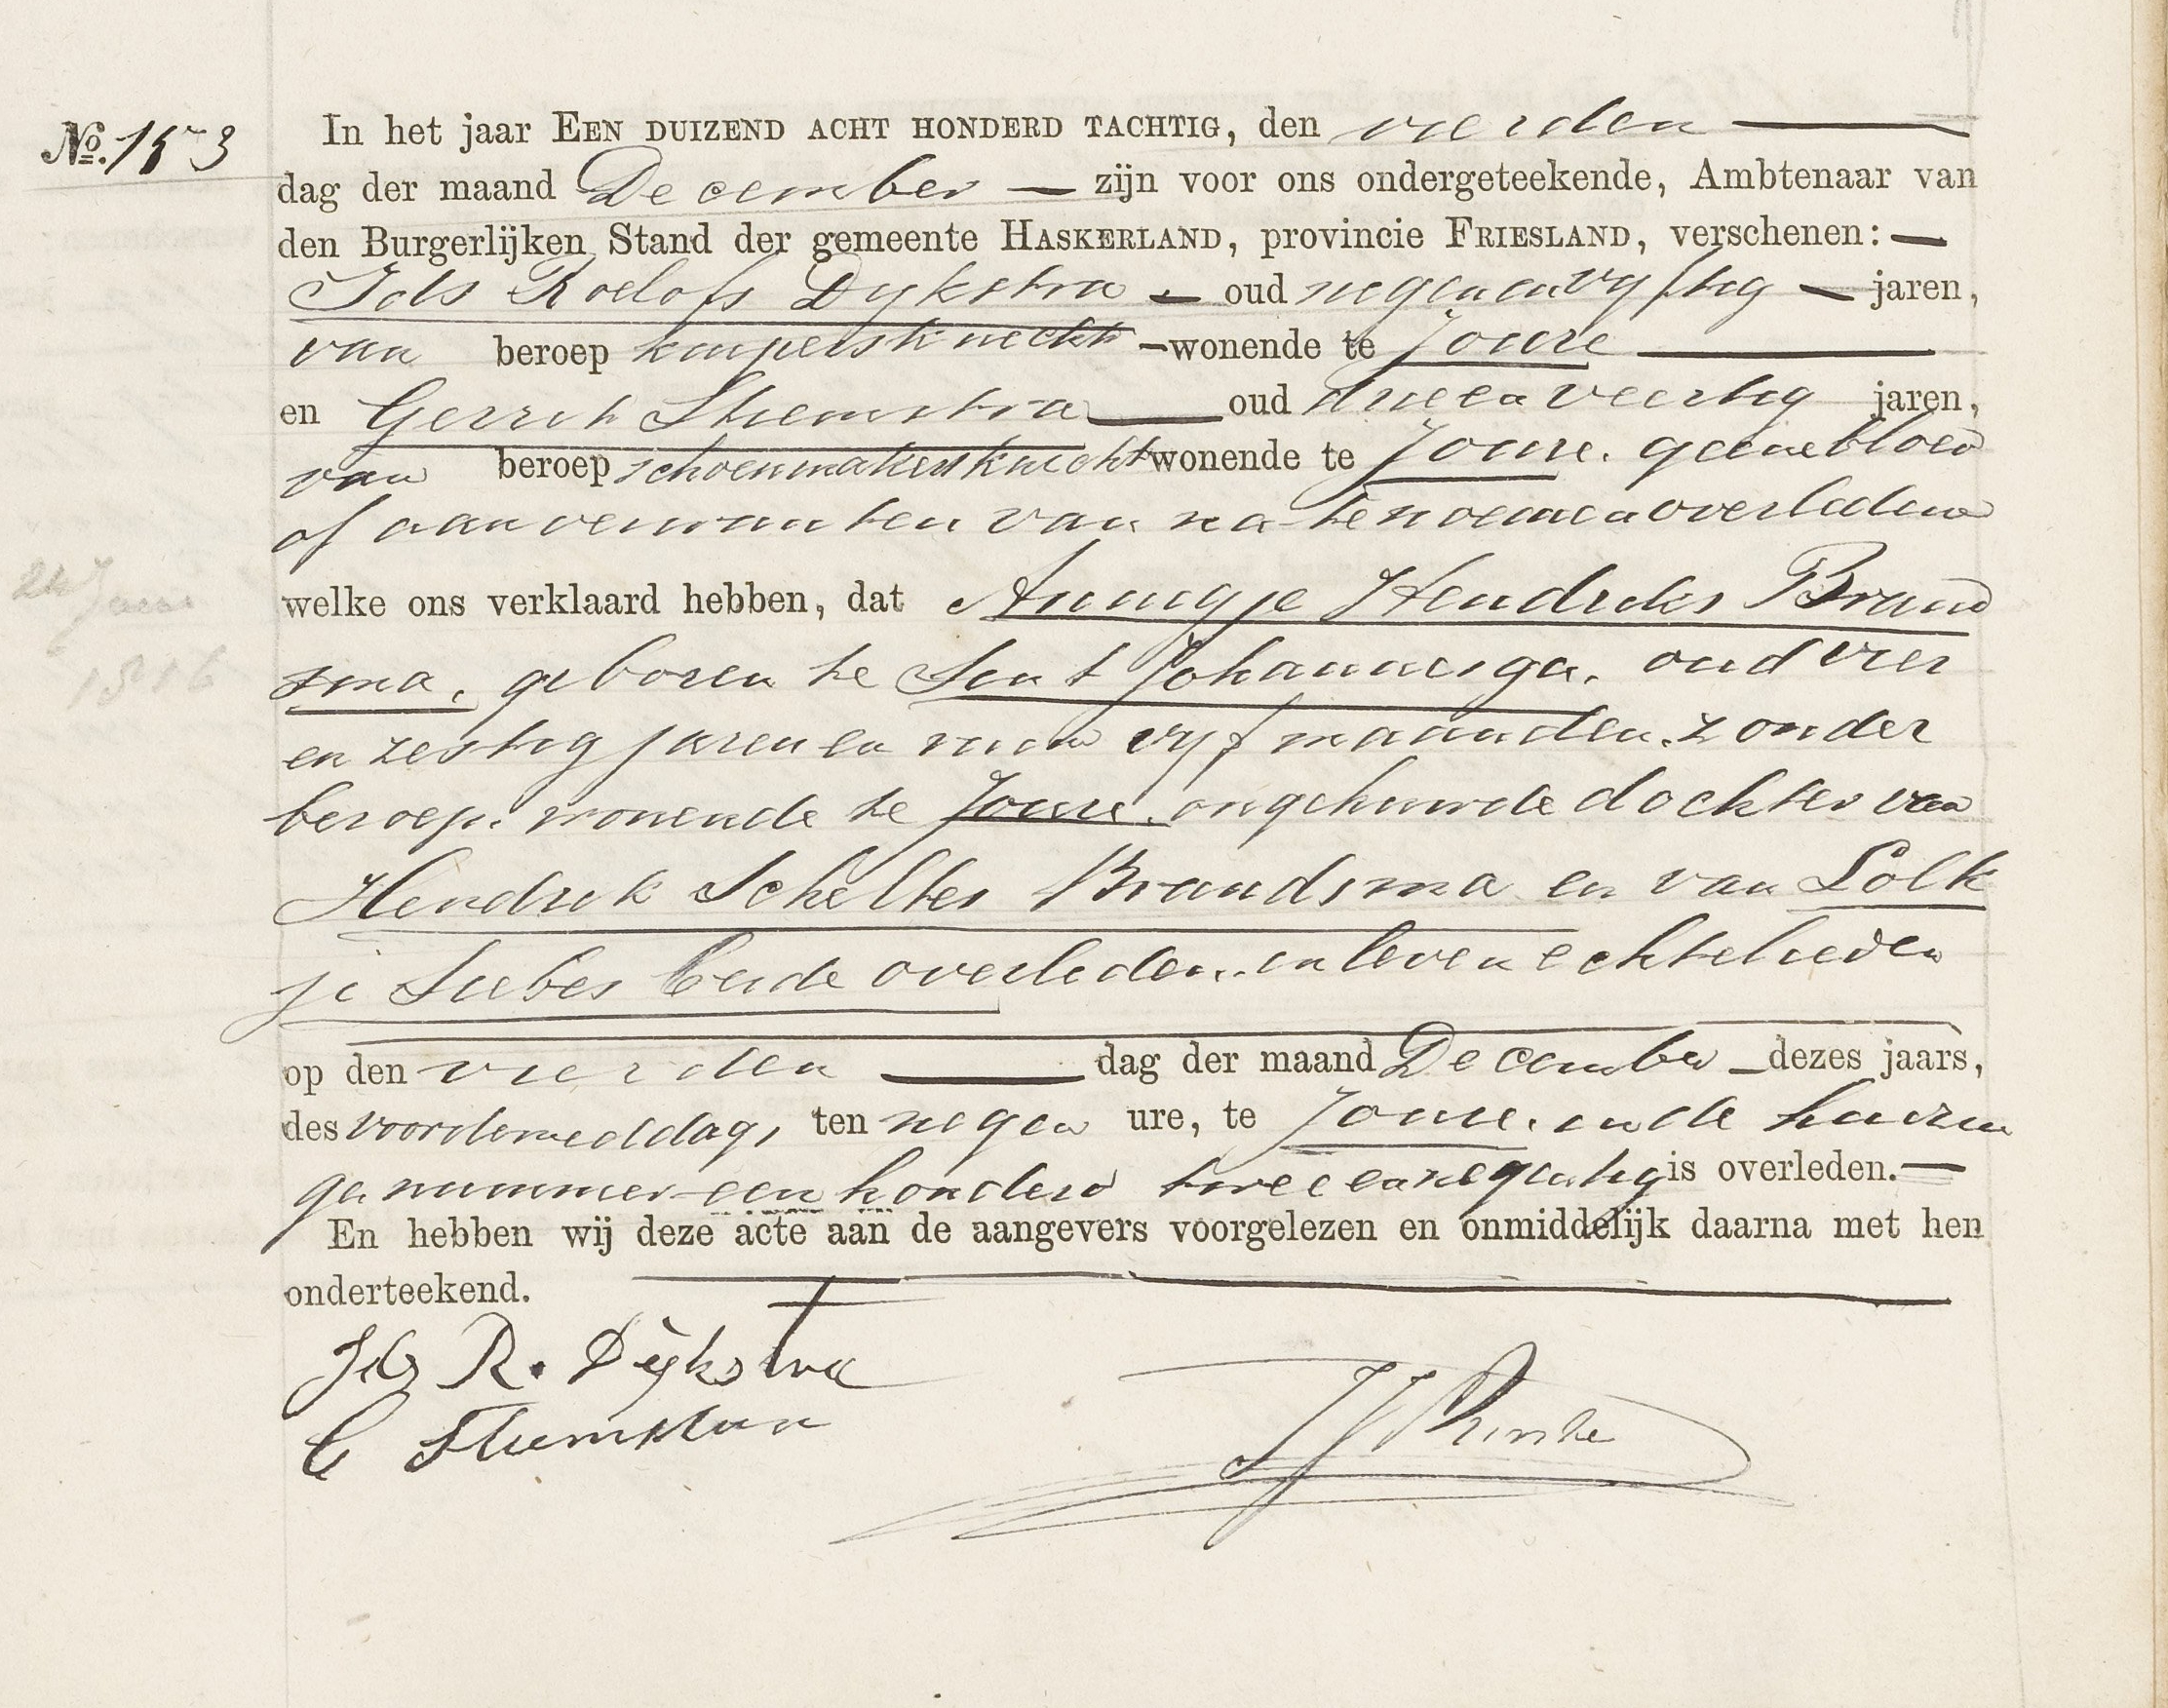 No. 153
In het jaar EEN DUIZEND ACHT HONDERD TACHTIG, den vierden
dag der maand December zijn voor ons ondergeteekende, Ambtenaar van
den Burgerlijken Stand der gemeente HASKERLAND, provincie FRIESLAND, verschenen:
Ids Roelofs Dykstra oud negenenvyftig jaren,
van beroep kuipersknecht wonende te Joure
en Gerrit Stiemstra oud drieenveertig jaren,
van beroep schoenmakersknecht wonende te Joure. geene bloed
of aanverwanten van na te noemen overledene
welke ons verklaard hebben, dat Annigje Hendriks Brand
sma, geboren te Sint Johannesga, oud vier
en zestig jaren en ruim vyf maanden. zonder
beroep. wonende te Joure. ongehuwde dochter van
Hendrik Scheltes Brandsma en van Lolk
je Siebes beide overleden. in leven echtelieden
24 Juni
1816
op den vierden dag der maand December dezes jaars,
des voordemiddags ten negen ure, te Joure. in de huizin
ge nummer een honderd tweeennegentig is overleden.
En hebben wij deze acte aan de aangevers voorgelezen en onmiddelijk daarna met hen
onderteekend.
Ids R. Dijkstra
G Stiemstra